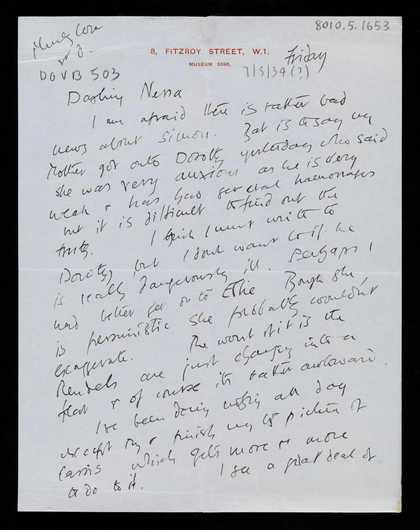 8010.5.1653
8, FITZROY STREET, W.1.
MUSEUM
Friday
DGVB 503
7/5/39(?)
Darling Nessa
I am afraid there is rather bad
news about Simon. That is to say my
Mother got onto Dorothy yesterday who said
she was very anxious as he is very
weak & has had several haemorrages
but it is difficult to find out the
truth. I think I must write to
Dorothy but I dont want to if he
is really dangerously ill. Perhaps I
had better get on to Elie. Though she
is pessimistic she probably wouldn't
exaggerate. The worst of it is the
Rendels are just changing into a
flat & of course its rather awkward.
I've been doing nothing all day
except try & finish my picture of
Cassis which gets more & more
to do to it. I see a great deal of